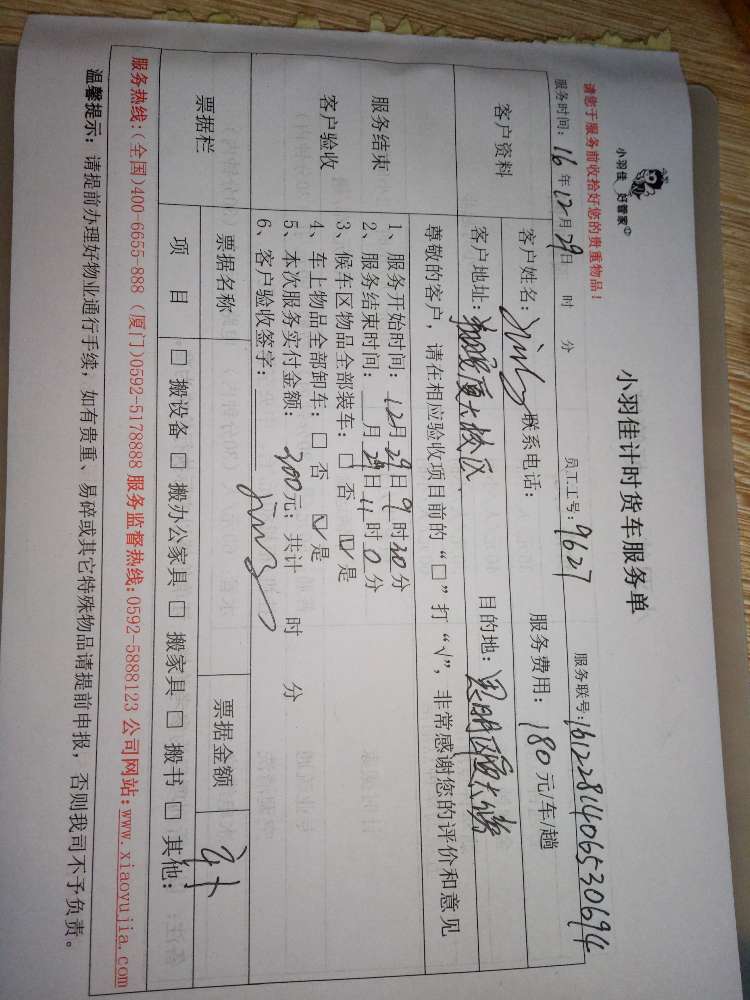 小羽佳 好管家
小羽佳计时货车服务单
请您于服务前收拾好您的贵重物品！
服务时间：16年12月29日 时 分 员工工号：9627 服务联号：1612281406530694
客户资料
客户姓名： 联系电话： 服务费用：180元/车/趟
客户地址：翔安厦大校区 目的地：思明区厦大
尊敬的客户，请在相应验收项目前的“□”打“√”，非常感谢您的评价和意见
服务结束
客户验收
1、服务开始时间：12月29日9时30分
2、服务结束时间： 月29日11时0分
3、候车区物品全部装车：□ 否 ☑ 是
4、车上物品全部卸车：□ 否 ☑ 是
5、本次服务实付金额：200元；共计 时 分
6、客户验收签字：
票据栏
票据名称 票据金额
项 目 □ 搬设备 □ 搬办公家具 □ 搬家具 □ 搬书 □ 其他：
服务热线:(全国)400-6655-888 (厦门)0592-5178888 服务监督热线:0592-5888123 公司网站:www.xiaoyujia.com
温馨提示：请提前办理好物业通行手续，如有贵重、易碎或其它特殊物品请提前申报，否则我司不予负责。